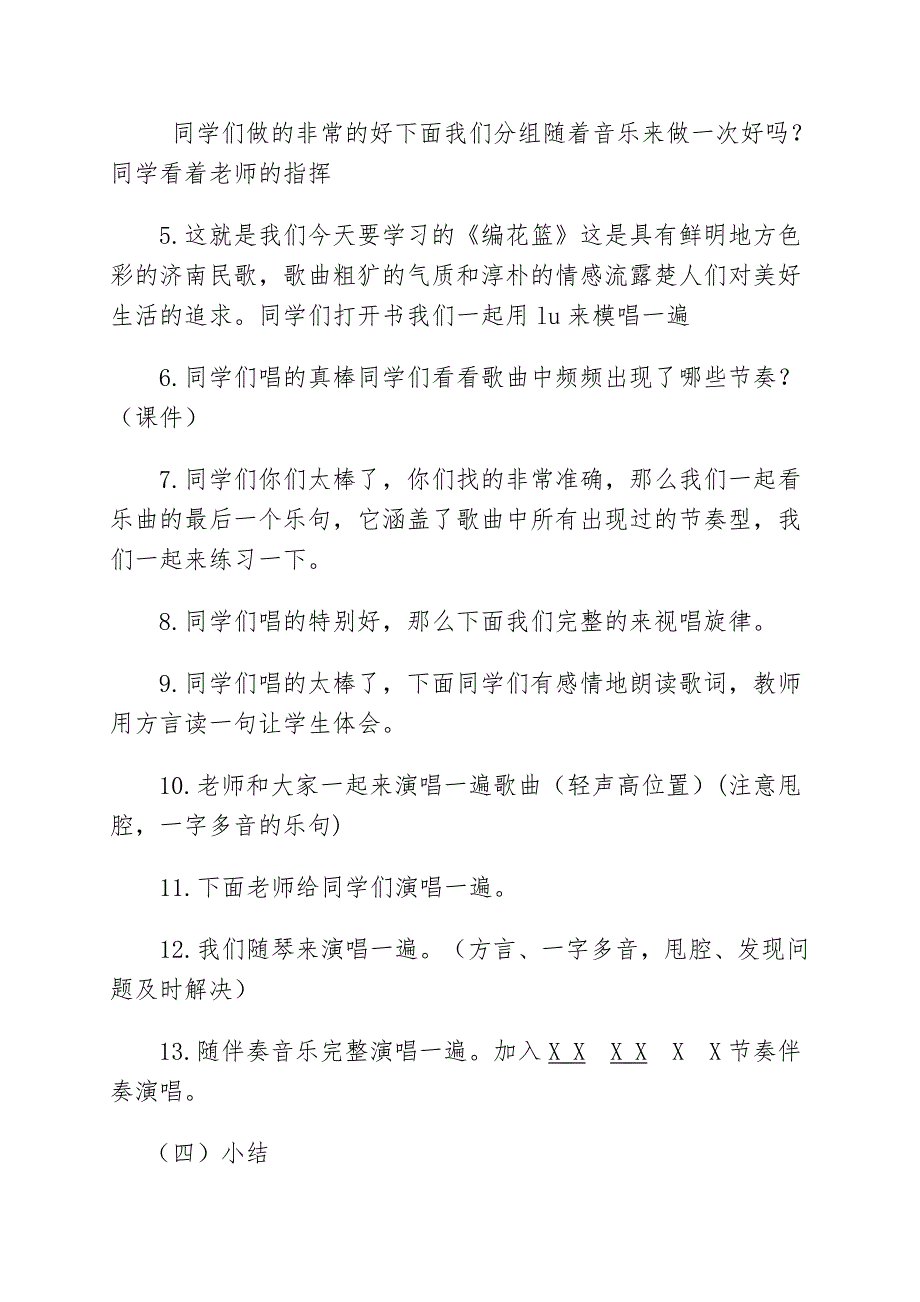 同学们做的非常的好下面我们分组随着音乐来做一次好吗？
同学看着老师的指挥
5.这就是我们今天要学习的《编花篮》这是具有鲜明地方色
彩的济南民歌，歌曲粗犷的气质和淳朴的情感流露楚人们对美好
生活的追求。同学们打开书我们一起用 lu 来模唱一遍
6.同学们唱的真棒同学们看看歌曲中频频出现了哪些节奏？
（课件）
7.同学们你们太棒了，你们找的非常准确，那么我们一起看
乐曲的最后一个乐句，它涵盖了歌曲中所有出现过的节奏型，我
们一起来练习一下。
8.同学们唱的特别好，那么下面我们完整的来视唱旋律。
9.同学们唱的太棒了，下面同学们有感情地朗读歌词，教师
用方言读一句让学生体会。
10.老师和大家一起来演唱一遍歌曲（轻声高位置）(注意甩
腔，一字多音的乐句)
11.下面老师给同学们演唱一遍。
12.我们随琴来演唱一遍。（方言、一字多音，甩腔、发现问
题及时解决）
13.随伴奏音乐完整演唱一遍。加入 X X  X X  X  X 节奏伴
奏演唱。
（四）小结